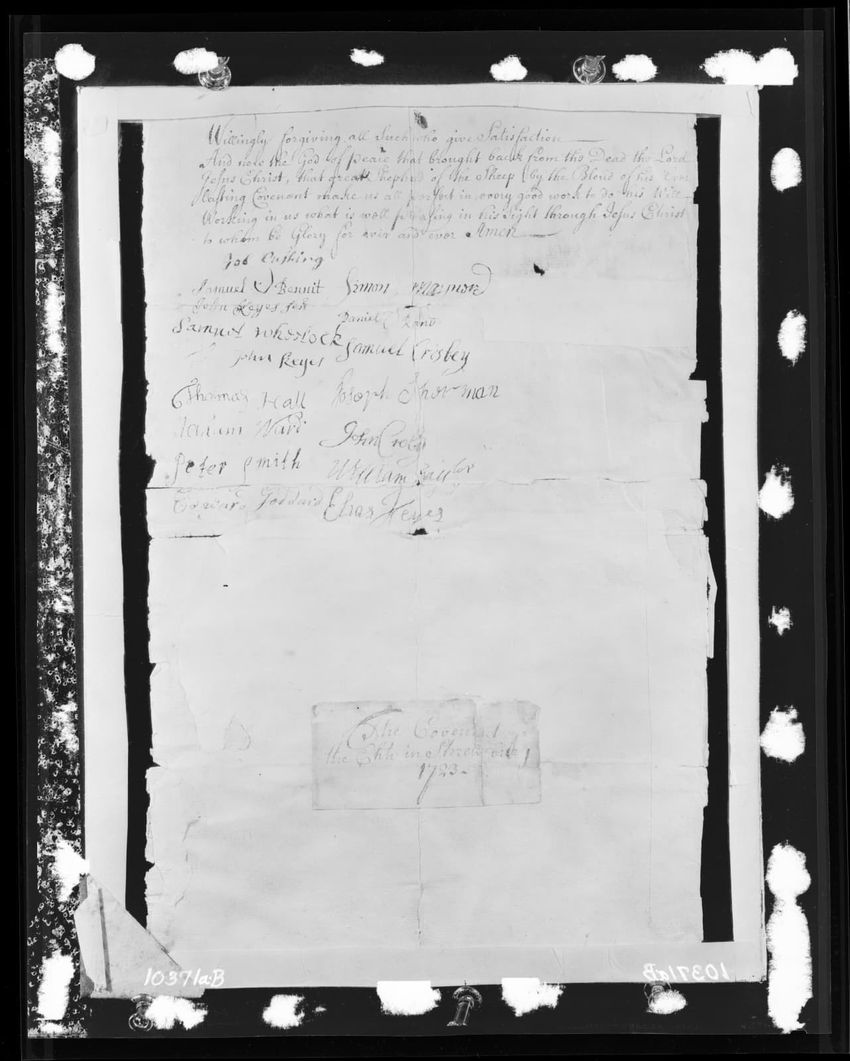 Willingly forgiving all Such who give Satisfaction
And now the God of peace that brought back from the Dead the Lord
Jesus Christ, that great Shepherd of the Sheep by the Blood of his Ever
lasting Covenant make us all perfect in every good work to do his Will
Working in us what is well pleasing in his Sight through Jesus Christ
to whom be Glory for ever and ever Amen
Job Cushing
Samuel Bennit Simon Maynord
John Keyes
Samuel Wheelock Daniel Rand
John Keyes Samuel Crosbey
Thomas Hall Joseph Shorman
Ward John Crosby
Peter Smith William Taylor
Edward Goddard Elias Keyes
The Covenant
the in
1723
10371a-B
10371aB